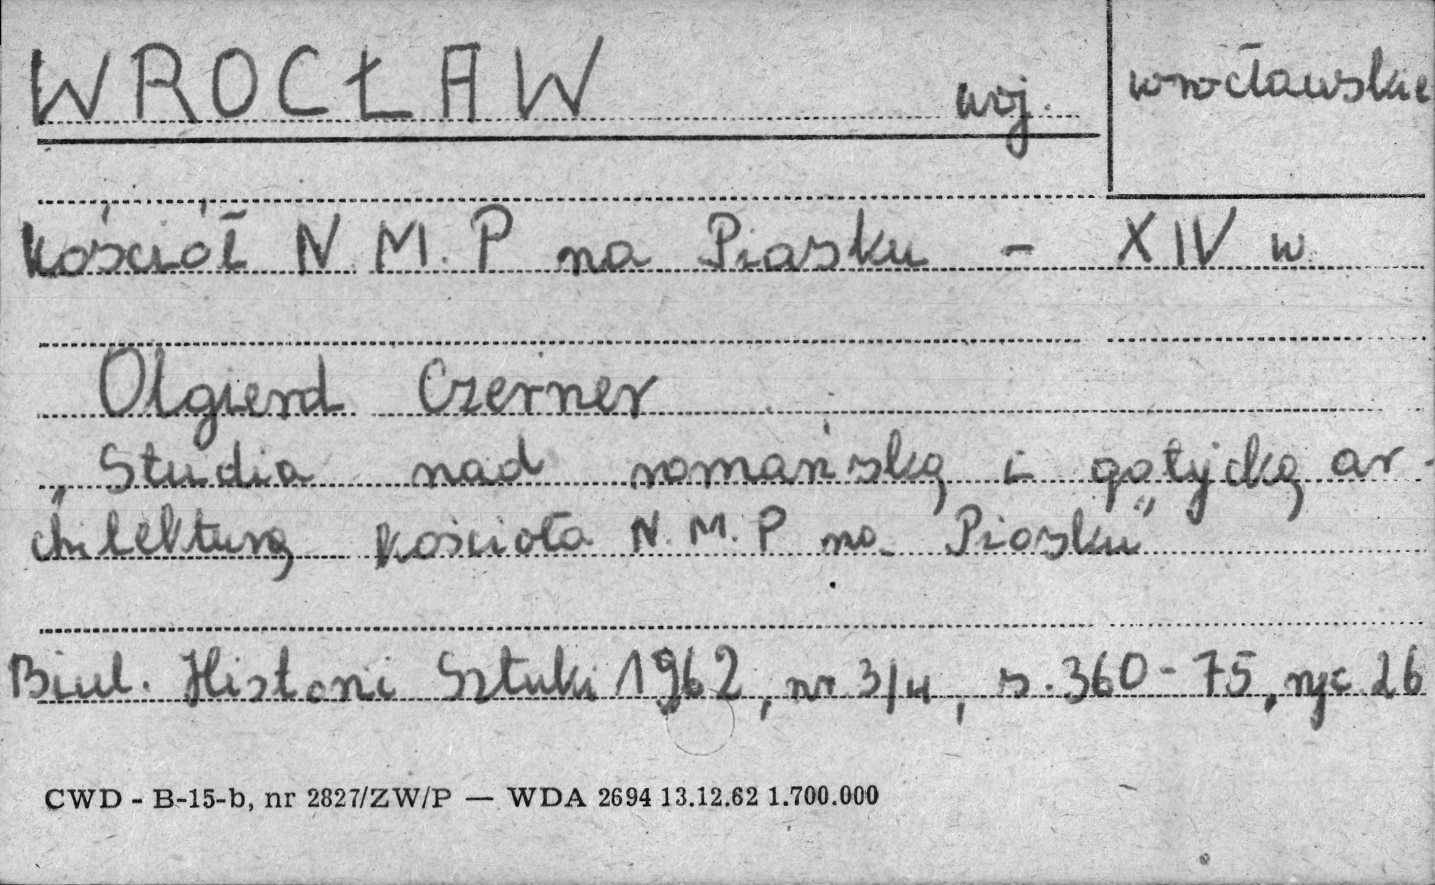 WROCŁAW woj. wrocławskie
Kościół N M. P na Piasku - XIV w.
Olgierd Czerner
„Studia nad romańską i gotycką ar-
chitekturą kościoła N. M. P na Piasku"
Biul. Historii Sztuki 1962, nr 3/4, s. 360-75, ryc 26
CWD - B-15-b, nr 2827/ZW/P — WDA 2694 13.12.62 1.700.000